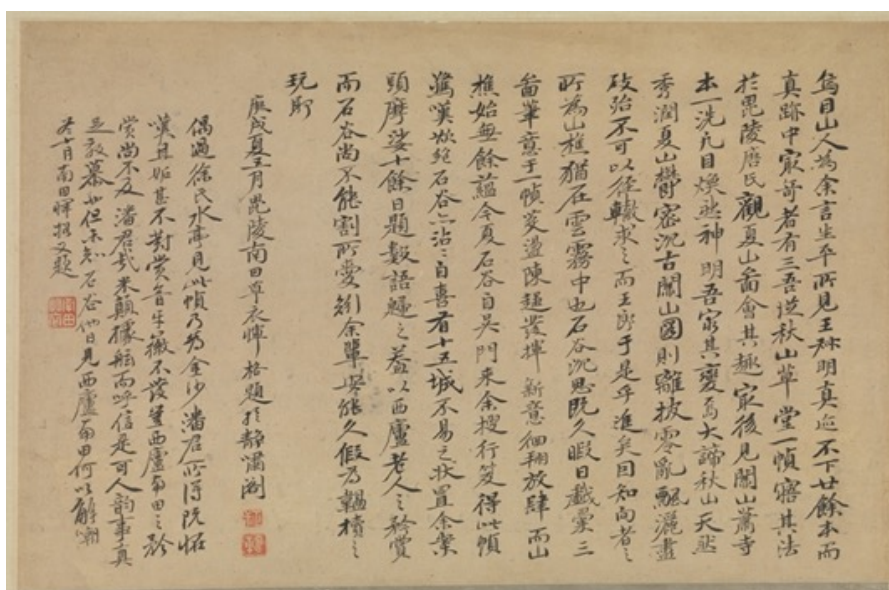 烏目山人為余言生平所見王叔明真迹不下廿餘本而
真跡中寂奇者有三吾從秋山草堂一幀寤其法
於毘陵唐氏觀夏山啚會其趣寂後見關山蕭寺
本一洗凡目煥然神明吾窮其變焉大諦秋山天然
秀潤夏山鬱密沉古關山圖則離披零亂飄灑盡
致殆不可以徑轍求之而王郎于是乎進矣因知向者之
所為山樵猶在雲霧中也石谷沉思既久暇日戲彙三
啚筆意于一幀滌盪陳趨發揮新意徊翔放肆而山
樵始無餘蘊今夏石谷自吳門來余搜行笈得此幀
驚嘆欲絕石谷亦沾沾自喜有十五城不易之狀置余案
頭摩娑十餘日題數語歸之葢以西廬老人之矜賞
而石谷尚不能割所愛矧余輩安能久假為韞櫝之
玩耶
庚戌夏五月毘陵南田草衣惲格題於靜嘯閣
偶過徐氏水亭見此幀乃為金沙潘君所得既怪
嘆且妬甚不對賞音牙徽不發豈西廬南田之矜
賞尚不及潘君哉米顛據舷而呼信是可人韻事真
足效慕也但未知石谷他日見西廬南田何以解嘲
冬十月南田惲格又題